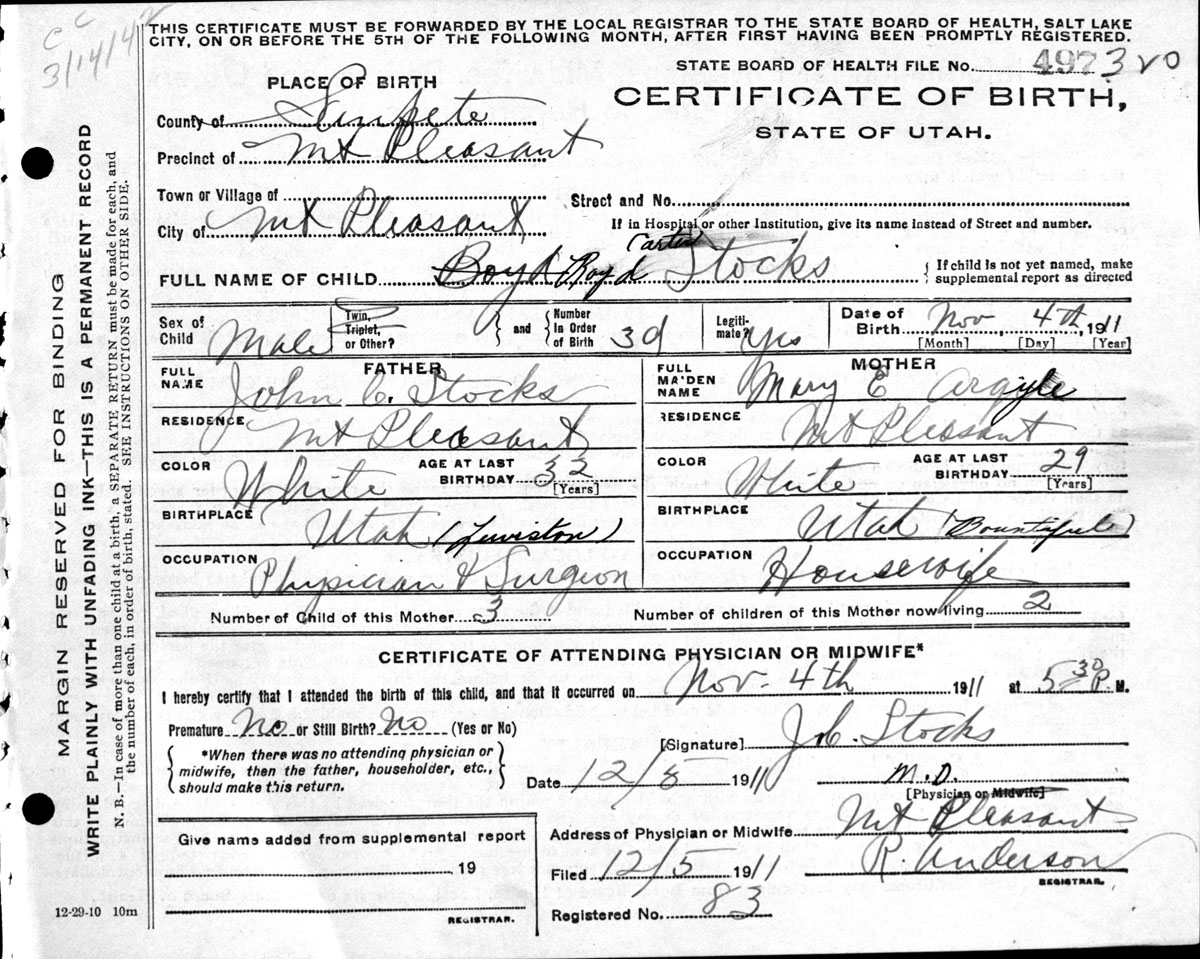 C C
3/14/42
THIS CERTIFICATE MUST BE FORWARDED BY THE LOCAL REGISTRAR TO THE STATE BOARD OF HEALTH, SALT LAKE
CITY, ON OR BEFORE THE 5TH OF THE FOLLOWING MONTH, AFTER FIRST HAVING BEEN PROMPTLY REGISTERED.
STATE BOARD OF HEALTH FILE No. 497 320
PLACE OF BIRTH
CERTIFICATE OF BIRTH,
STATE OF UTAH.
County of Sanpete
Precinct of Mt Pleasant
Town or Village of
Street and No.
City of Mt Pleasant
If in Hospital or other Institution, give its name instead of Street and number.
FULL NAME OF CHILD Boyd Boyd Carter Stocks { If child is not yet named, make
supplemental report as directed
Sex of Child Male
Twin, Triplet, or Other? } and { Number in Order of Birth 3d
Legiti-mate? Yes
Date of Birth Nov, 4th, 1911
[Month] [Day] [Year]
FATHER
FULL NAME John C. Stocks
RESIDENCE Mt Pleasant
COLOR White AGE AT LAST BIRTHDAY 32 [Years]
BIRTHPLACE Utah (Lewiston)
OCCUPATION Physician & Surgeon
MOTHER
FULL MAIDEN NAME Mary E Argyle
RESIDENCE Mt Pleasant
COLOR White AGE AT LAST BIRTHDAY 29 [Years]
BIRTHPLACE Utah (Bountiful)
OCCUPATION Housewife
Number of Child of this Mother 3 Number of children of this Mother now living 2
CERTIFICATE OF ATTENDING PHYSICIAN OR MIDWIFE*
I hereby certify that I attended the birth of this child, and that it occurred on Nov. 4th 1911 at 5 30 P. M.
Premature No or Still Birth? No (Yes or No)
{ *When there was no attending physician or
midwife, then the father, householder, etc.,
should make this return. }
[Signature] J. C. Stocks
Date 12/5 1911 M.D.
[Physician or Midwife]
Give name added from supplemental report
19
REGISTRAR.
Address of Physician or Midwife Mt Pleasant
Filed 12/5 1911 R. Anderson
REGISTRAR.
Registered No. 83
12-29-10 10m
MARGIN RESERVED FOR BINDING
WRITE PLAINLY WITH UNFADING INK—THIS IS A PERMANENT RECORD
N. B.—In case of more than one child at a birth, a SEPARATE RETURN must be made for each, and
the number of each, in order of birth, stated. SEE INSTRUCTIONS ON OTHER SIDE.